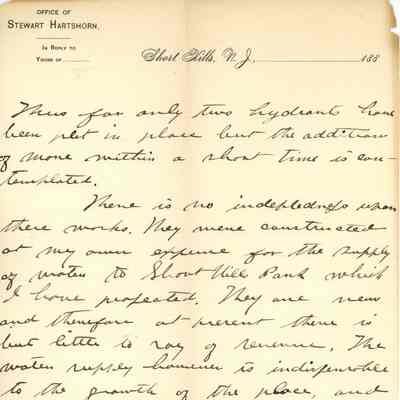 OFFICE OF
STEWART HARTSHORN.
IN REPLY TO
YOURS OF
Short Hills, N. J., 188
Thus far only two hydrants have
been put in place but the addition
of more within a short time is con-
templated.
There is no indeptedness upon
these works. They were constructed
at my own expense for the supply
of water to Short Hills Park which
I have projected. They are new
and therefore at present there is
but little to say of revenue. The
water supply however is indispensible
to the growth of the place, and